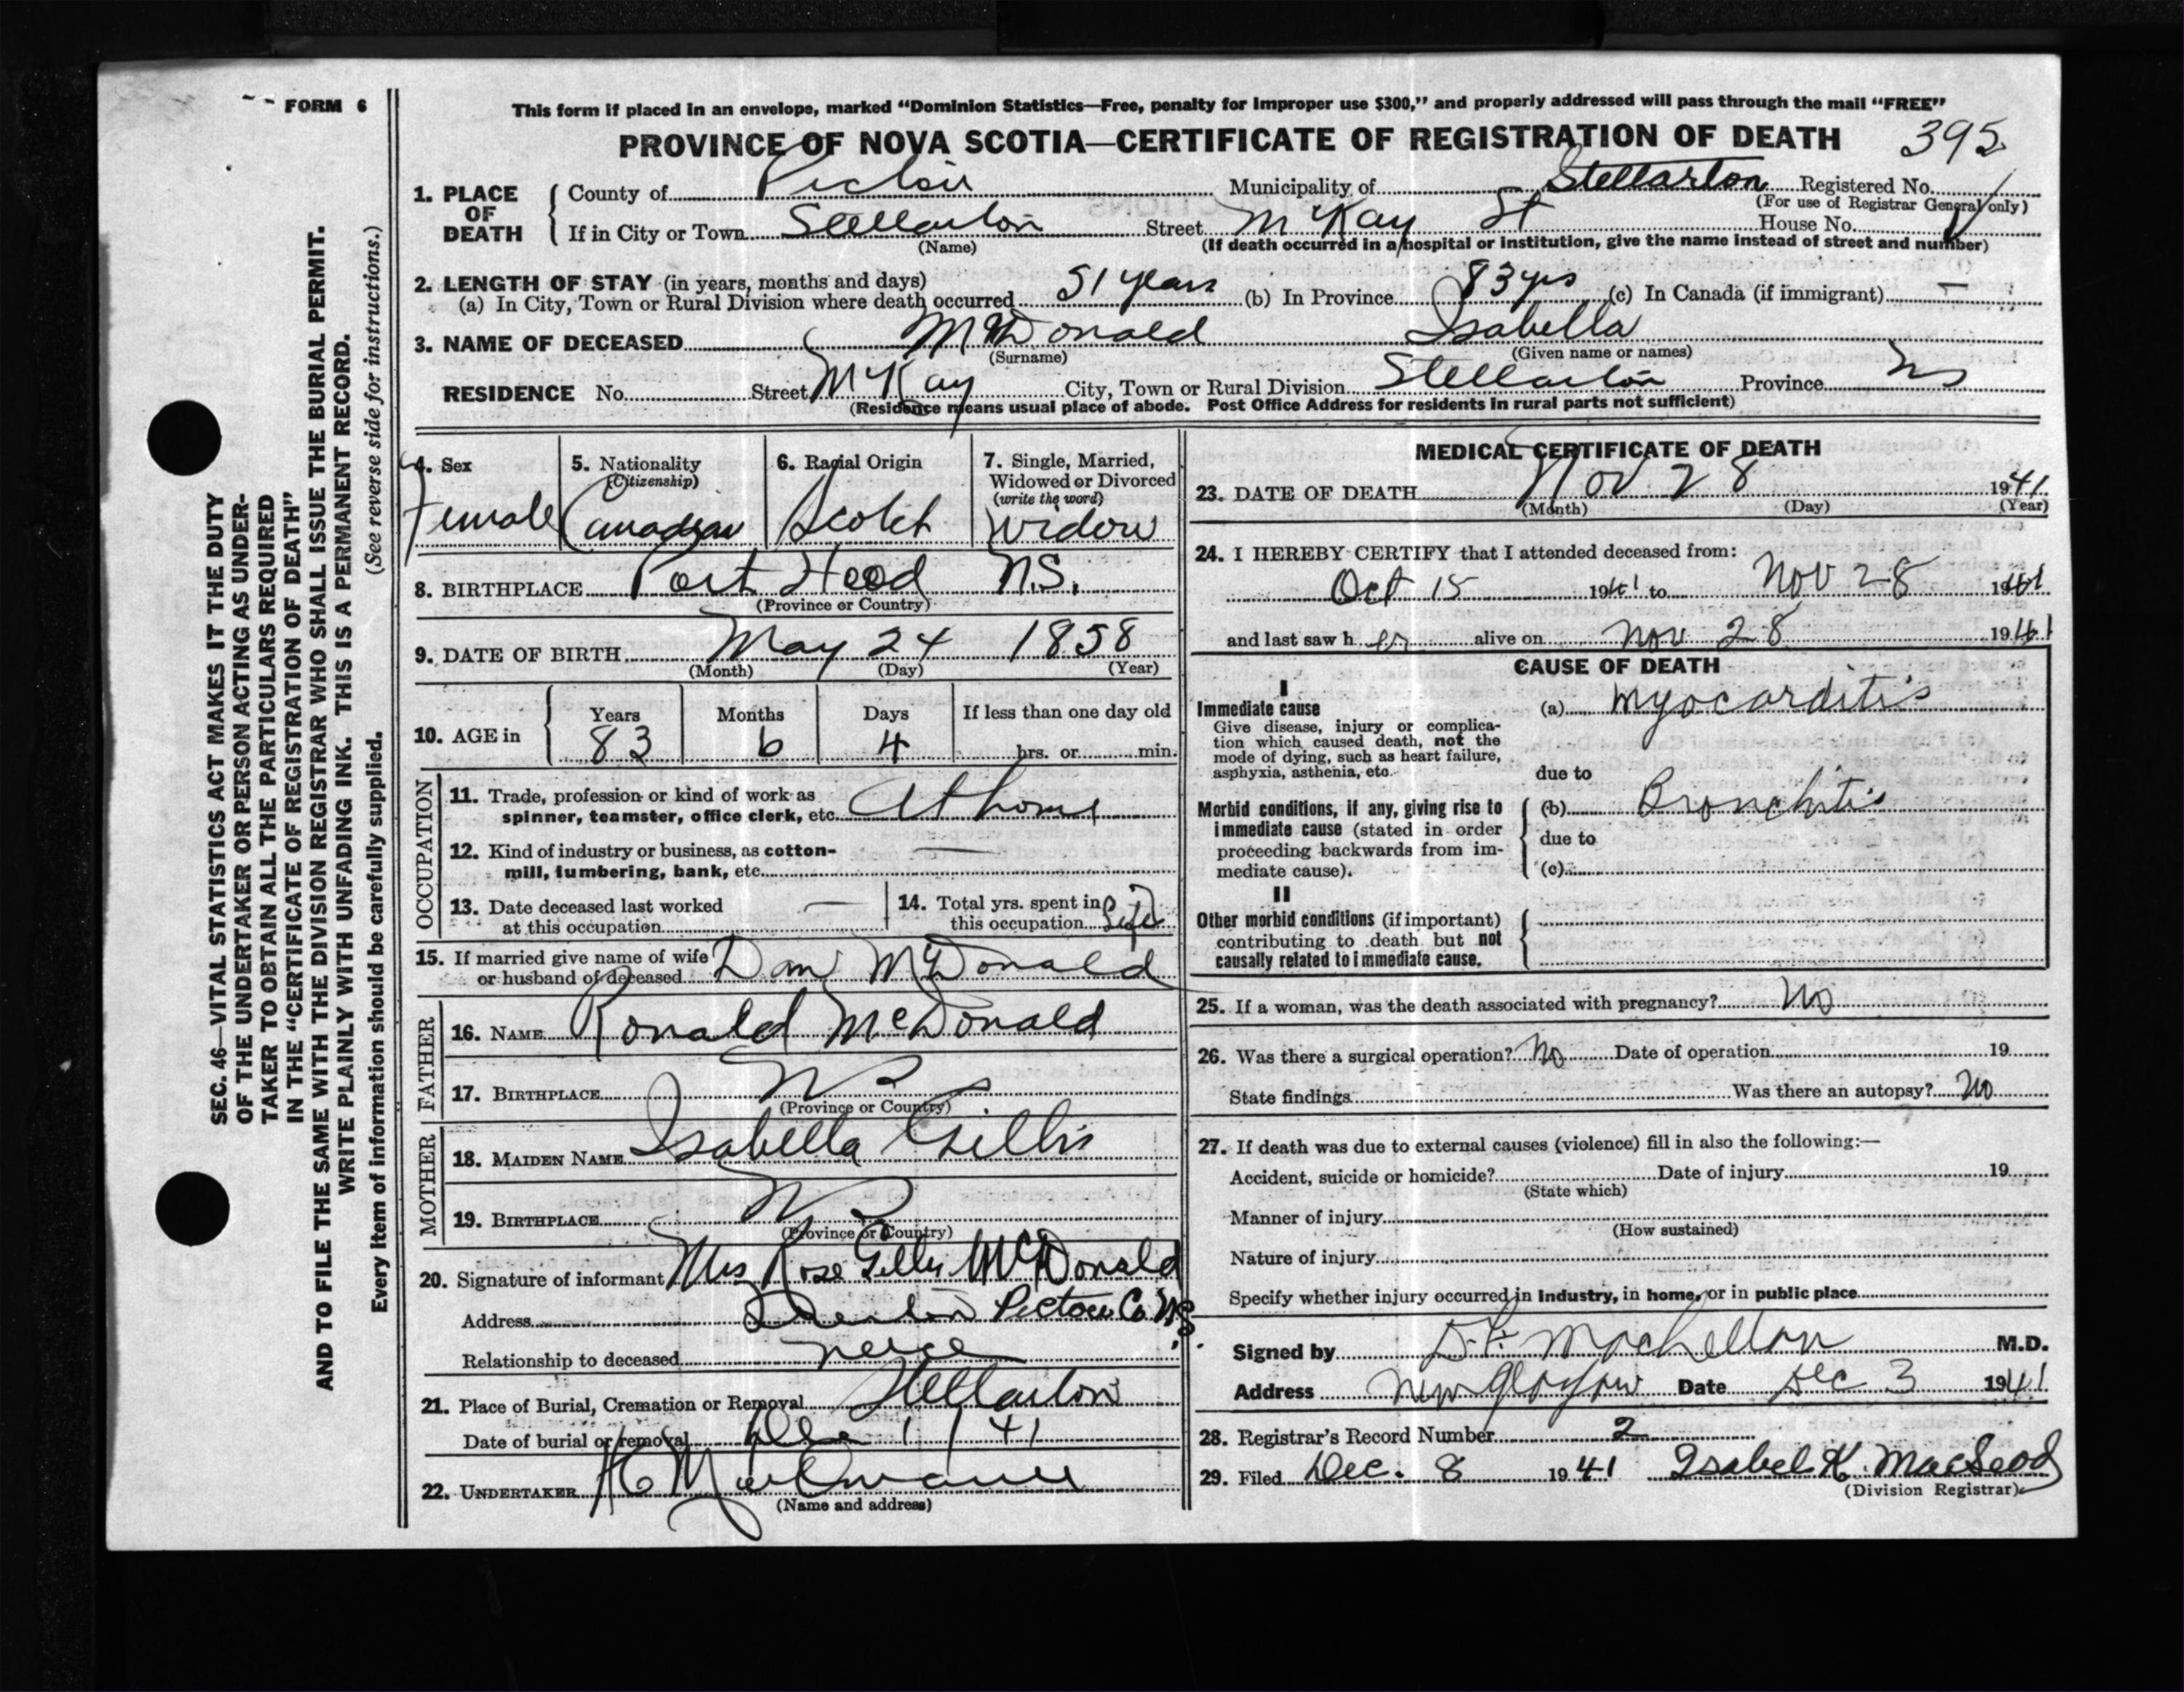 FORM 6
This form if placed in an envelope, marked “Dominion Statistics—Free, penalty for improper use $300,” and properly addressed will pass through the mail “FREE”
PROVINCE OF NOVA SCOTIA—CERTIFICATE OF REGISTRATION OF DEATH 395
1. PLACE OF DEATH { County of Pictou Municipality of Stellarton Registered No.
(For use of Registrar General only)
If in City or Town Stellarton Street McKay St House No.
(Name) (If death occurred in a hospital or institution, give the name instead of street and number)
2. LENGTH OF STAY (in years, months and days)
(a) In City, Town or Rural Division where death occurred 51 years (b) In Province 83 yrs (c) In Canada (if immigrant) —
3. NAME OF DECEASED McDonald Isabella
(Surname) (Given name or names)
RESIDENCE No. Street McKay City, Town or Rural Division Stellarton Province NS
(Residence means usual place of abode. Post Office Address for residents in rural parts not sufficient)
4. Sex Female
5. Nationality (Citizenship) Canadian
6. Racial Origin Scotch
7. Single, Married, Widowed or Divorced (write the word) Widow
8. BIRTHPLACE Port Hood N.S.
(Province or Country)
9. DATE OF BIRTH May 24 1858
(Month) (Day) (Year)
10. AGE in { Years 83 Months 6 Days 4 If less than one day old hrs. or min.
OCCUPATION
11. Trade, profession or kind of work as
spinner, teamster, office clerk, etc. At home
12. Kind of industry or business, as cotton-
mill, lumbering, bank, etc. —
13. Date deceased last worked
at this occupation —
14. Total yrs. spent in
this occupation Life
15. If married give name of wife
or husband of deceased Dan McDonald
FATHER
16. NAME Ronald McDonald
17. BIRTHPLACE NS
(Province or Country)
MOTHER
18. MAIDEN NAME Isabella Gillis
19. BIRTHPLACE NS
(Province or Country)
20. Signature of informant Mrs Rose Gillis McDonald
Address Pictou Co NS
Relationship to deceased neice
21. Place of Burial, Cremation or Removal Stellarton
Date of burial or removal Dec 1 / 41
22. UNDERTAKER
(Name and address)
MEDICAL CERTIFICATE OF DEATH
23. DATE OF DEATH Nov 28 1941
(Month) (Day) (Year)
24. I HEREBY CERTIFY that I attended deceased from:
Oct 15 1941 to Nov 28 1941
and last saw her alive on Nov 28 1941
CAUSE OF DEATH
I
Immediate cause
Give disease, injury or complica-
tion which caused death, not the
mode of dying, such as heart failure,
asphyxia, asthenia, etc.
(a) Myocarditis
due to
Morbid conditions, if any, giving rise to
immediate cause (stated in order
proceeding backwards from im-
mediate cause).
(b) Bronchitis
due to
(c)
II
Other morbid conditions (if important)
contributing to death but not
causally related to immediate cause.
25. If a woman, was the death associated with pregnancy? No
26. Was there a surgical operation? No Date of operation 19
State findings Was there an autopsy? No
27. If death was due to external causes (violence) fill in also the following:—
Accident, suicide or homicide? Date of injury 19
(State which)
Manner of injury
(How sustained)
Nature of injury
Specify whether injury occurred in industry, in home, or in public place
Signed by MacLellan M.D.
Address New Glasgow Date Dec 3 1941
28. Registrar's Record Number 2
29. Filed Dec. 8 1941 Isabel K. MacLeod
(Division Registrar)
SEC. 46—VITAL STATISTICS ACT MAKES IT THE DUTY
OF THE UNDERTAKER OR PERSON ACTING AS UNDER-
TAKER TO OBTAIN ALL THE PARTICULARS REQUIRED
IN THE “CERTIFICATE OF REGISTRATION OF DEATH”
AND TO FILE THE SAME WITH THE DIVISION REGISTRAR WHO SHALL ISSUE THE BURIAL PERMIT.
WRITE PLAINLY WITH UNFADING INK. THIS IS A PERMANENT RECORD.
Every item of information should be carefully supplied. (See reverse side for instructions.)